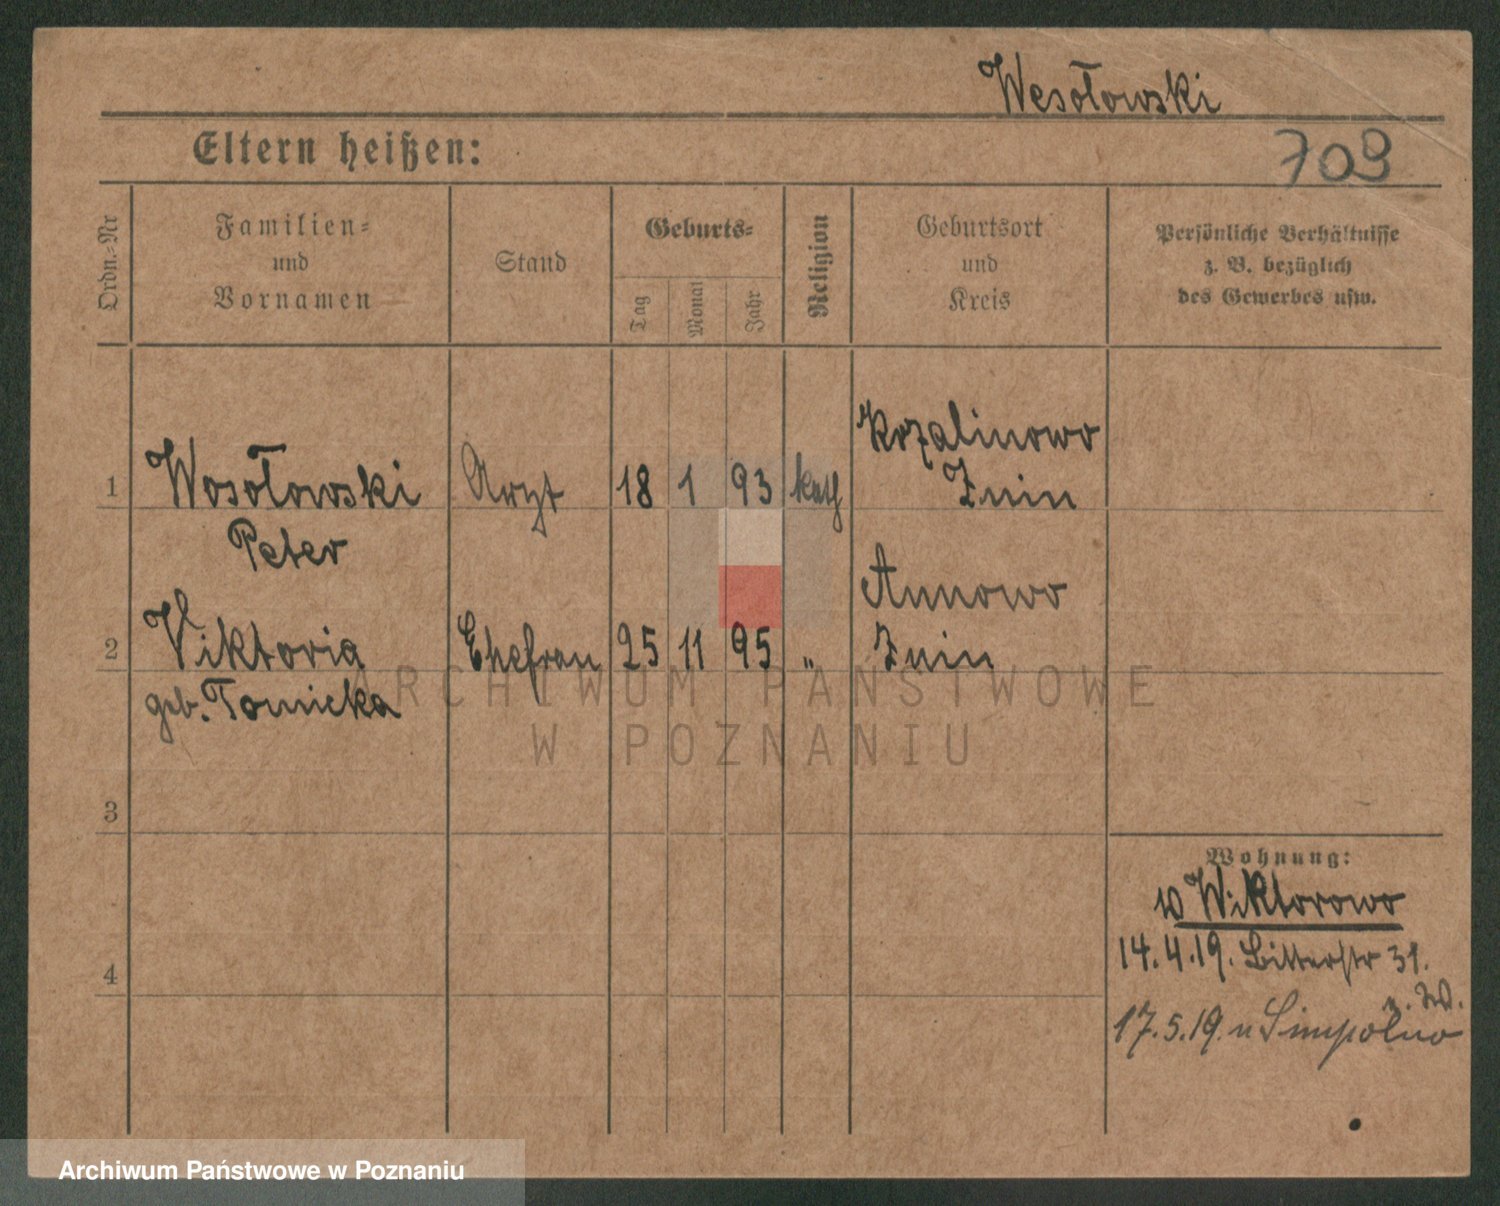 Wesołowski
Eltern heißen:
709
Ordn.-Nr
Familien-
und
Vornamen
Stand
Geburts-
Tag
Monat
Jahr
Religion
Geburtsort
und
Kreis
Persönliche Verhältnisse
z. B. bezüglich
des Gewerbes usw.
1 Wosołowski Arzt 18 1 93 kath Krzalinowo
Znin
Peter
2 Viktoria Ehefrau 25 11 95 " Annowo
Znin
geb. Tomicka
3
4
Wohnung:
w Wiktorowo
14.4.19. Bitterstr 31.
z. W.
17.5.19. n Simpolno
ARCHIWUM PAŃSTWOWE
W POZNANIU
Archiwum Państwowe w Poznaniu